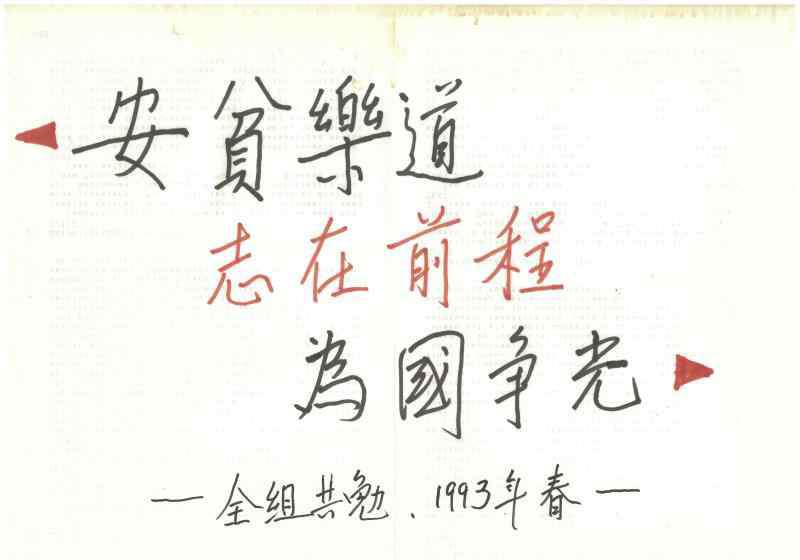 安貧樂道
志在前程
為國争光
— 全组共勉、1993年春 —